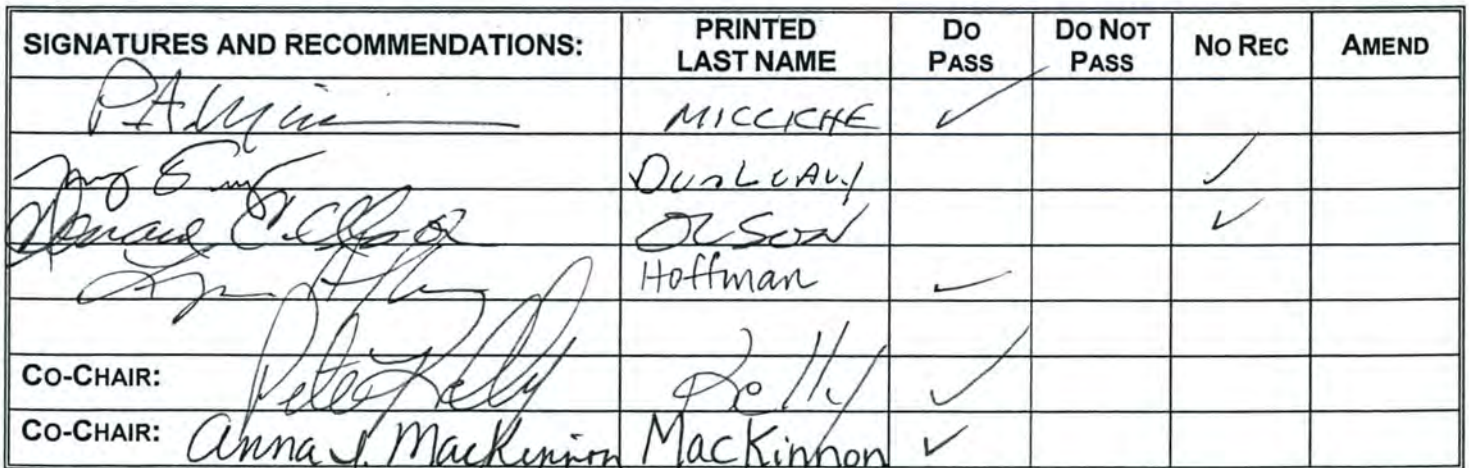 SIGNATURES AND RECOMMENDATIONS: PRINTED LAST NAME DO PASS DO NOT PASS NO REC AMEND
MICCICHE ✓
DUNLEAVY ✓
OLSON ✓
Hoffman ✓
CO-CHAIR: Pete Kelly Kelly ✓
CO-CHAIR: Anna I. MacKinnon MacKinnon ✓